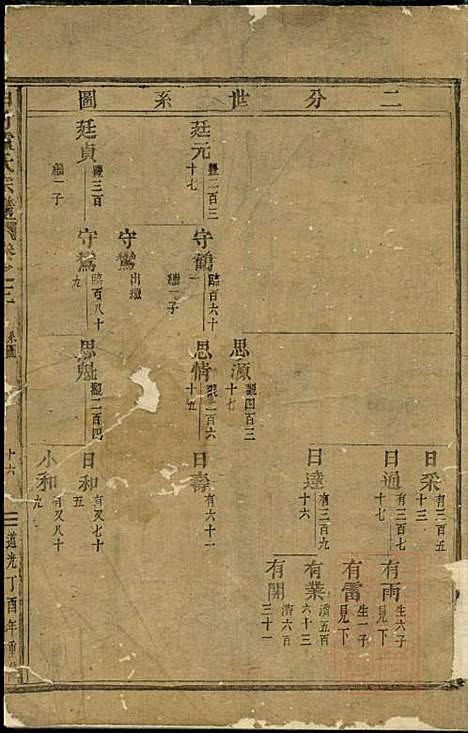 二分世系圖
廷元 豐二百三十七
廷貞 豐三百
繼一子
守鶴 臨百六十一
繼一子
守鸞 出繼
守鴛 臨百八十九
思源 觀四百三十七
思情 觀二百六十五
思魁 觀二百四
日采 有三百五十三
日通 有三百七十七
日達 有三百九十六
日壽 有六十一
日和 有又七十五
小和 有又八十九
有雨 生六子見下
有雷 生一子見下
有業 濟五百六十三
有開 濟六百三十一
氏宗
系圖
十六
道光丁酉年重